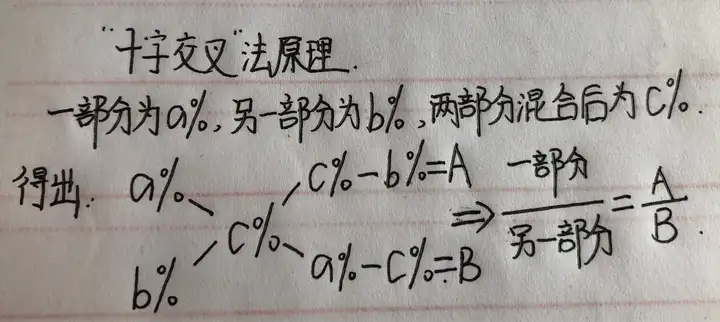 "十字交叉"法原理.
一部分为a%,另一部分为b%,两部分混合后为C%.
得出: a% C%-b%=A 一部分 A
C% ⇒ —— = —
b% a%-C%=B 另一部分 B.